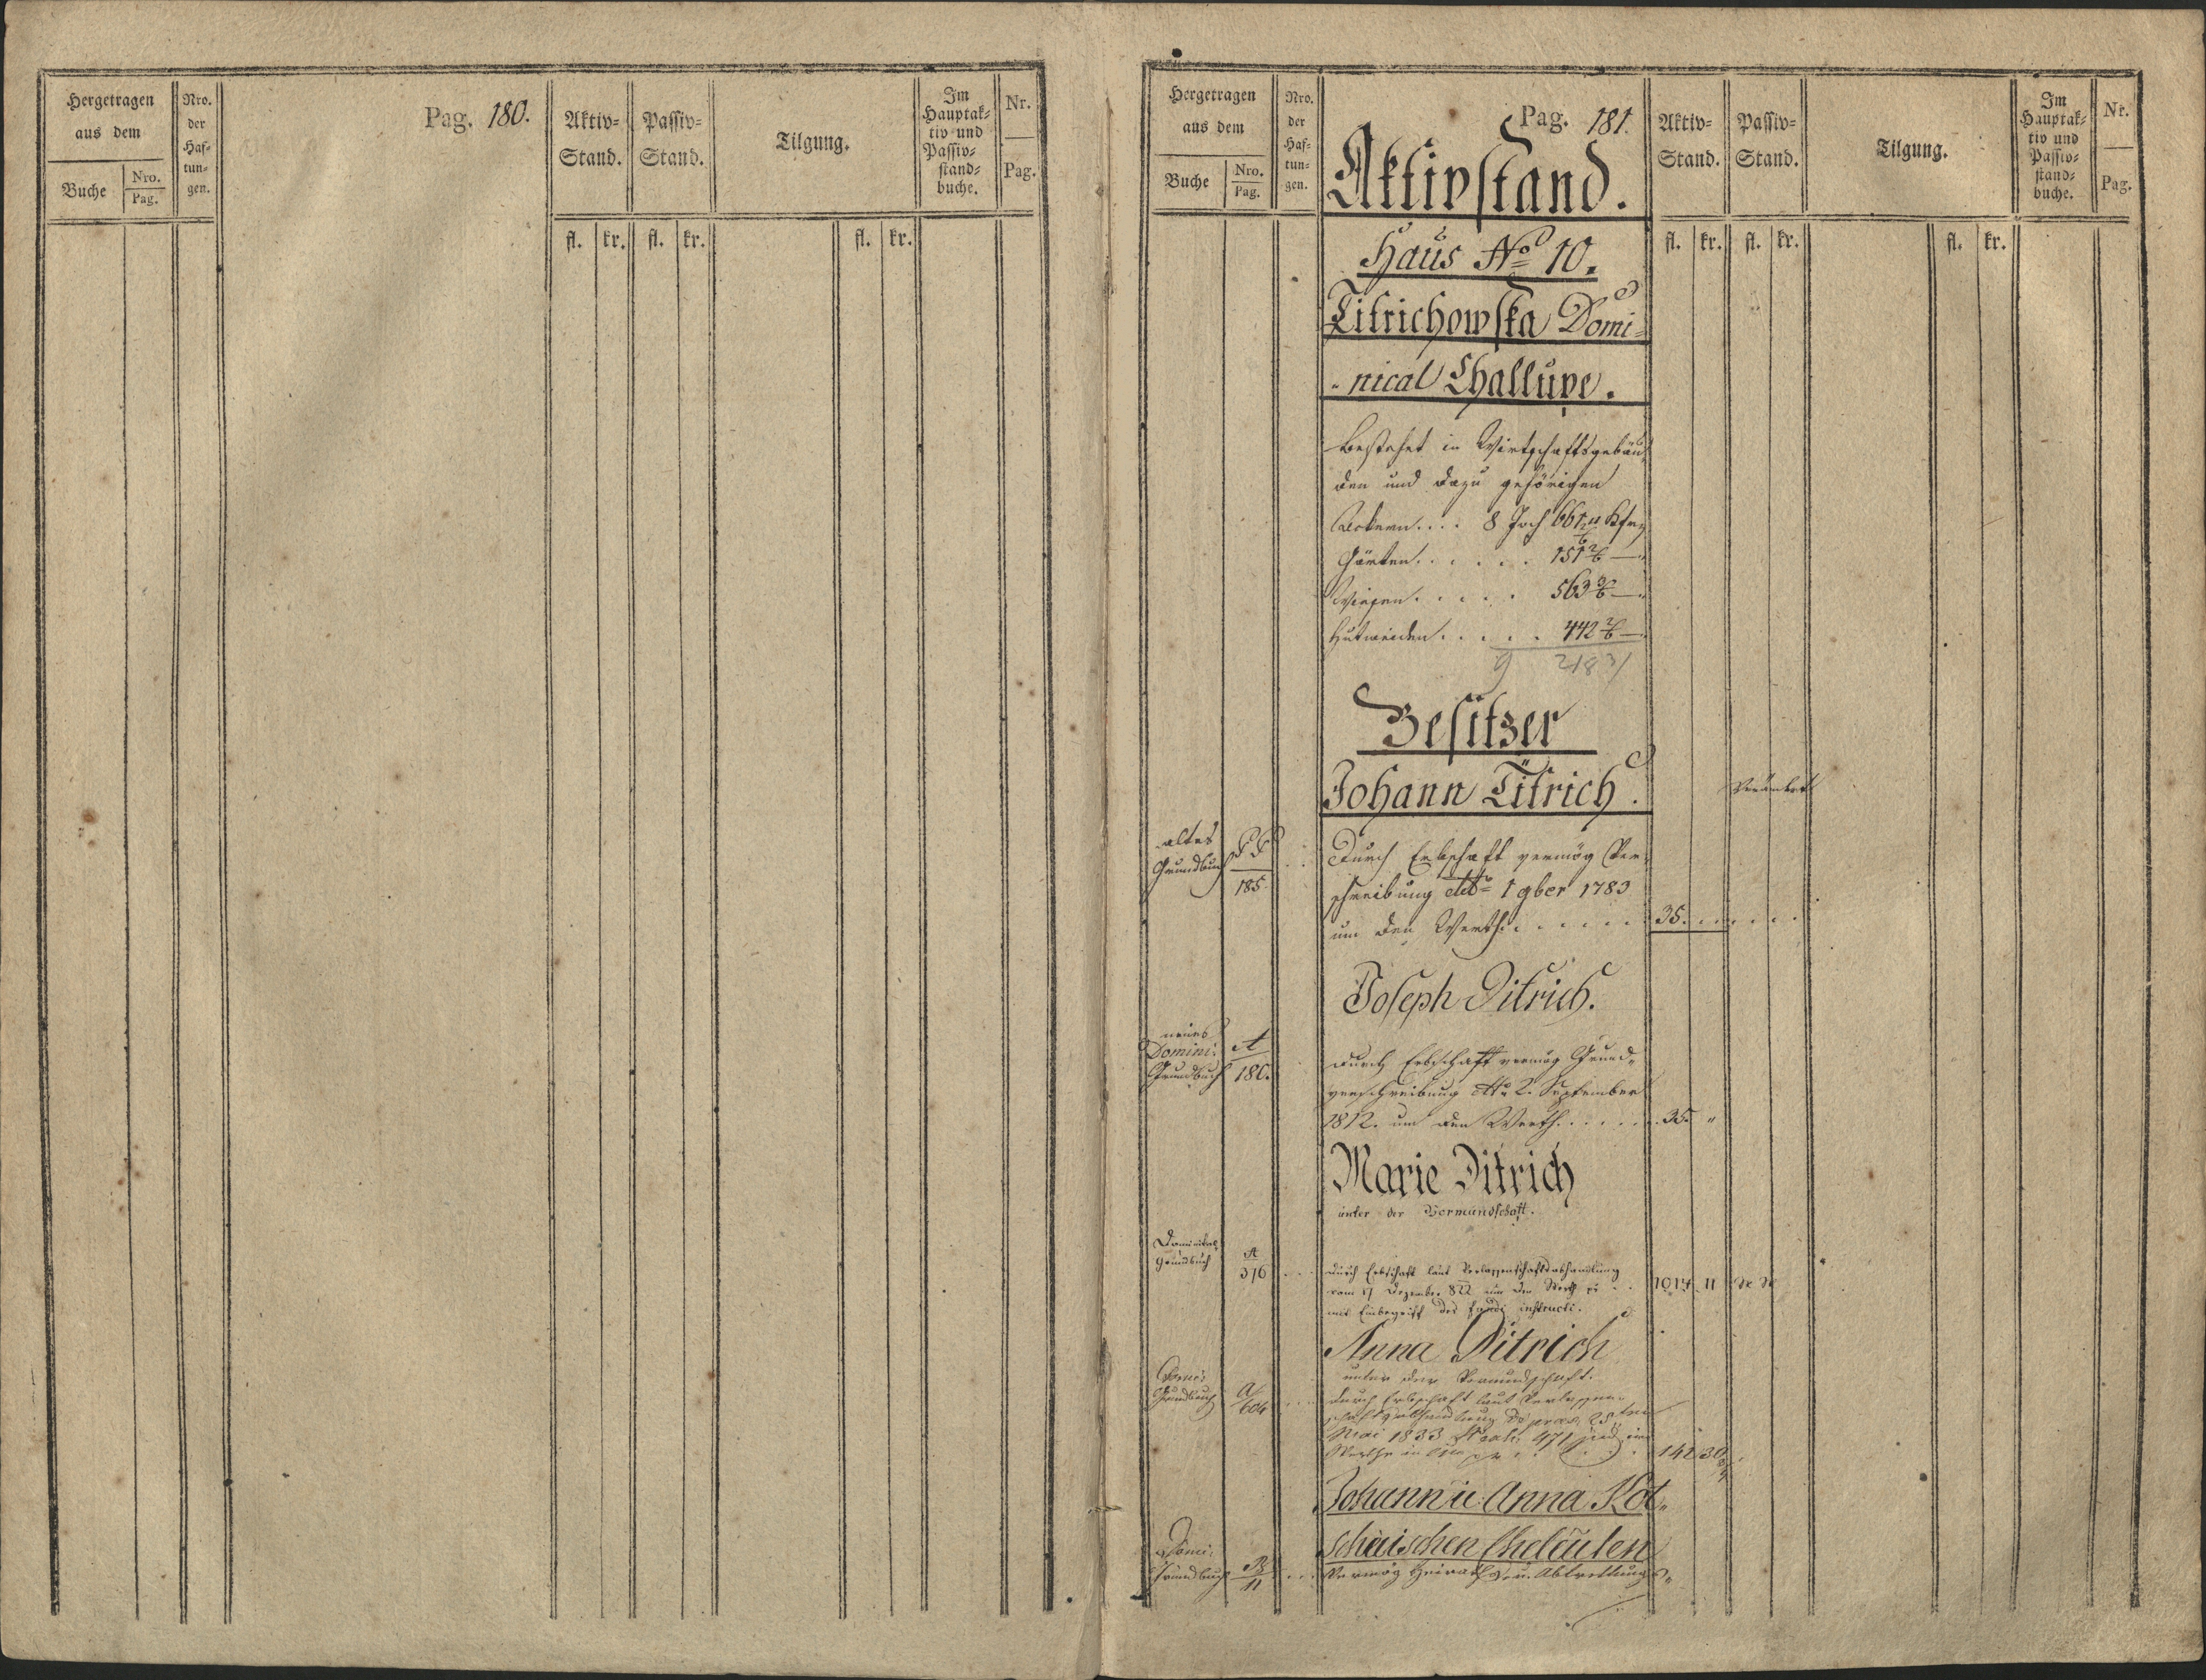 Hergetragen
aus dem
Buche
Nro.
Pag.
Nro.
der
Haf=
tun=
gen.
Pag. 180.
Aktiv=
Stand.
Passiv=
Stand.
Tilgung.
Im
Hauptak=
tiv und
Passiv=
stand=
buche.
Nr.
Pag.
fl. kr. fl. kr. fl. kr.
Hergetragen
aus dem
Buche
Nro.
Pag.
Nro.
der
Haf=
tun=
gen.
Pag. 181.
Aktivstand.
Aktiv=
Stand.
Passiv=
Stand.
Tilgung.
Im
Hauptak=
tiv und
Passiv=
stand=
buche.
Nr.
Pag.
fl. kr. fl. kr. fl. kr.
Haus No 10.
Titrichowska Domi=
nical Challupe.
Bestehet in Wirtschaftsgebäu=
den und dazu gehörigen
Aeckern.... 8 Joch 661
Gärten...... 151 2/6 —
Wiesen..... 563 3/6 —
Hutweiden..... 442 2/6 —
9 218
Besitzer
Johann Titrich.
altes
Grundbuch
185
Durch Erbschaft vermög Ver=
schreibung dto 1 9ber 1783
um den Werth...... 35.
Joseph Ditrich.
neues
Domini:
Grundbuch
A
180.
durch Erbschaft vermög Grund=
verschreibung dto 2. September
1812. um den Werth...... 35. "
Marie Ditrich
unter der Vormundschaft.
Dominikal
Grundbuch
A
376
durch Erbschaft laut Verlassenschaftsabhandlung
vom 17 Dezember 822 um den Werth pr .. 1014 11
mit Einbegriff des fundi instructi.
Anna Ditrich
unter der Vormundschaft.
Domi:
Grundbuch
A
604
durch Erbschaft laut Verlassen=
schaftsabhandlung 25ten
Mai 1833 471 im
Werthe in 142 30
Johann u: Anna Kot=
schischen Eheleuten
Domi:
Grundbuch
B
11
Vermög Heirats- u. Abtrettungs=